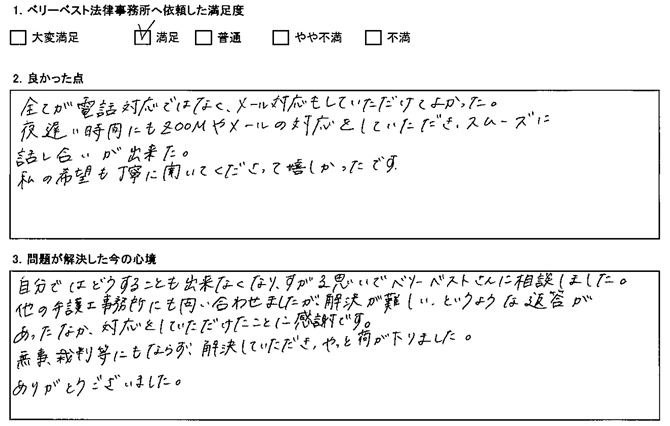 1. ベリーベスト法律事務所へ依頼した満足度
□ 大変満足 ☑ 満足 □ 普通 □ やや不満 □ 不満
2. 良かった点
全てが電話対応ではなく、メール対応もしていただけてよかった。
夜遅い時間にもZOOMやメールの対応をしていただき、スムーズに
話し合いが出来た。
私の希望も丁寧に聞いてくださって嬉しかったです.
3. 問題が解決した今の心境
自分ではどうすることも出来なくなり、すがる思いでベリーベストさんに相談しました。
他の弁護士事務所にも問い合わせましたが、解決が難しい、というような返答が
あったなか、対応をしていただけたことに感謝です。
無事、裁判等にもならず、解決していただき、やっと荷が下りました。
ありがとうございました。